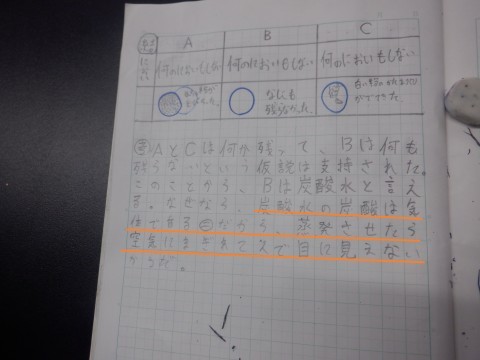 結
A B C
におい
何のにおいもしない 何のにおいもしない 何のにおいもしない
なにも
残らなかった。
ができた
考 AとCは何か残って、Bは何も
残らないという仮説は支持された。
このことから、Bは炭酸水と言え
る。なぜなら、炭酸水の炭酸は気
体である だから、蒸発させたら
空気に て目に見えない
からだ。